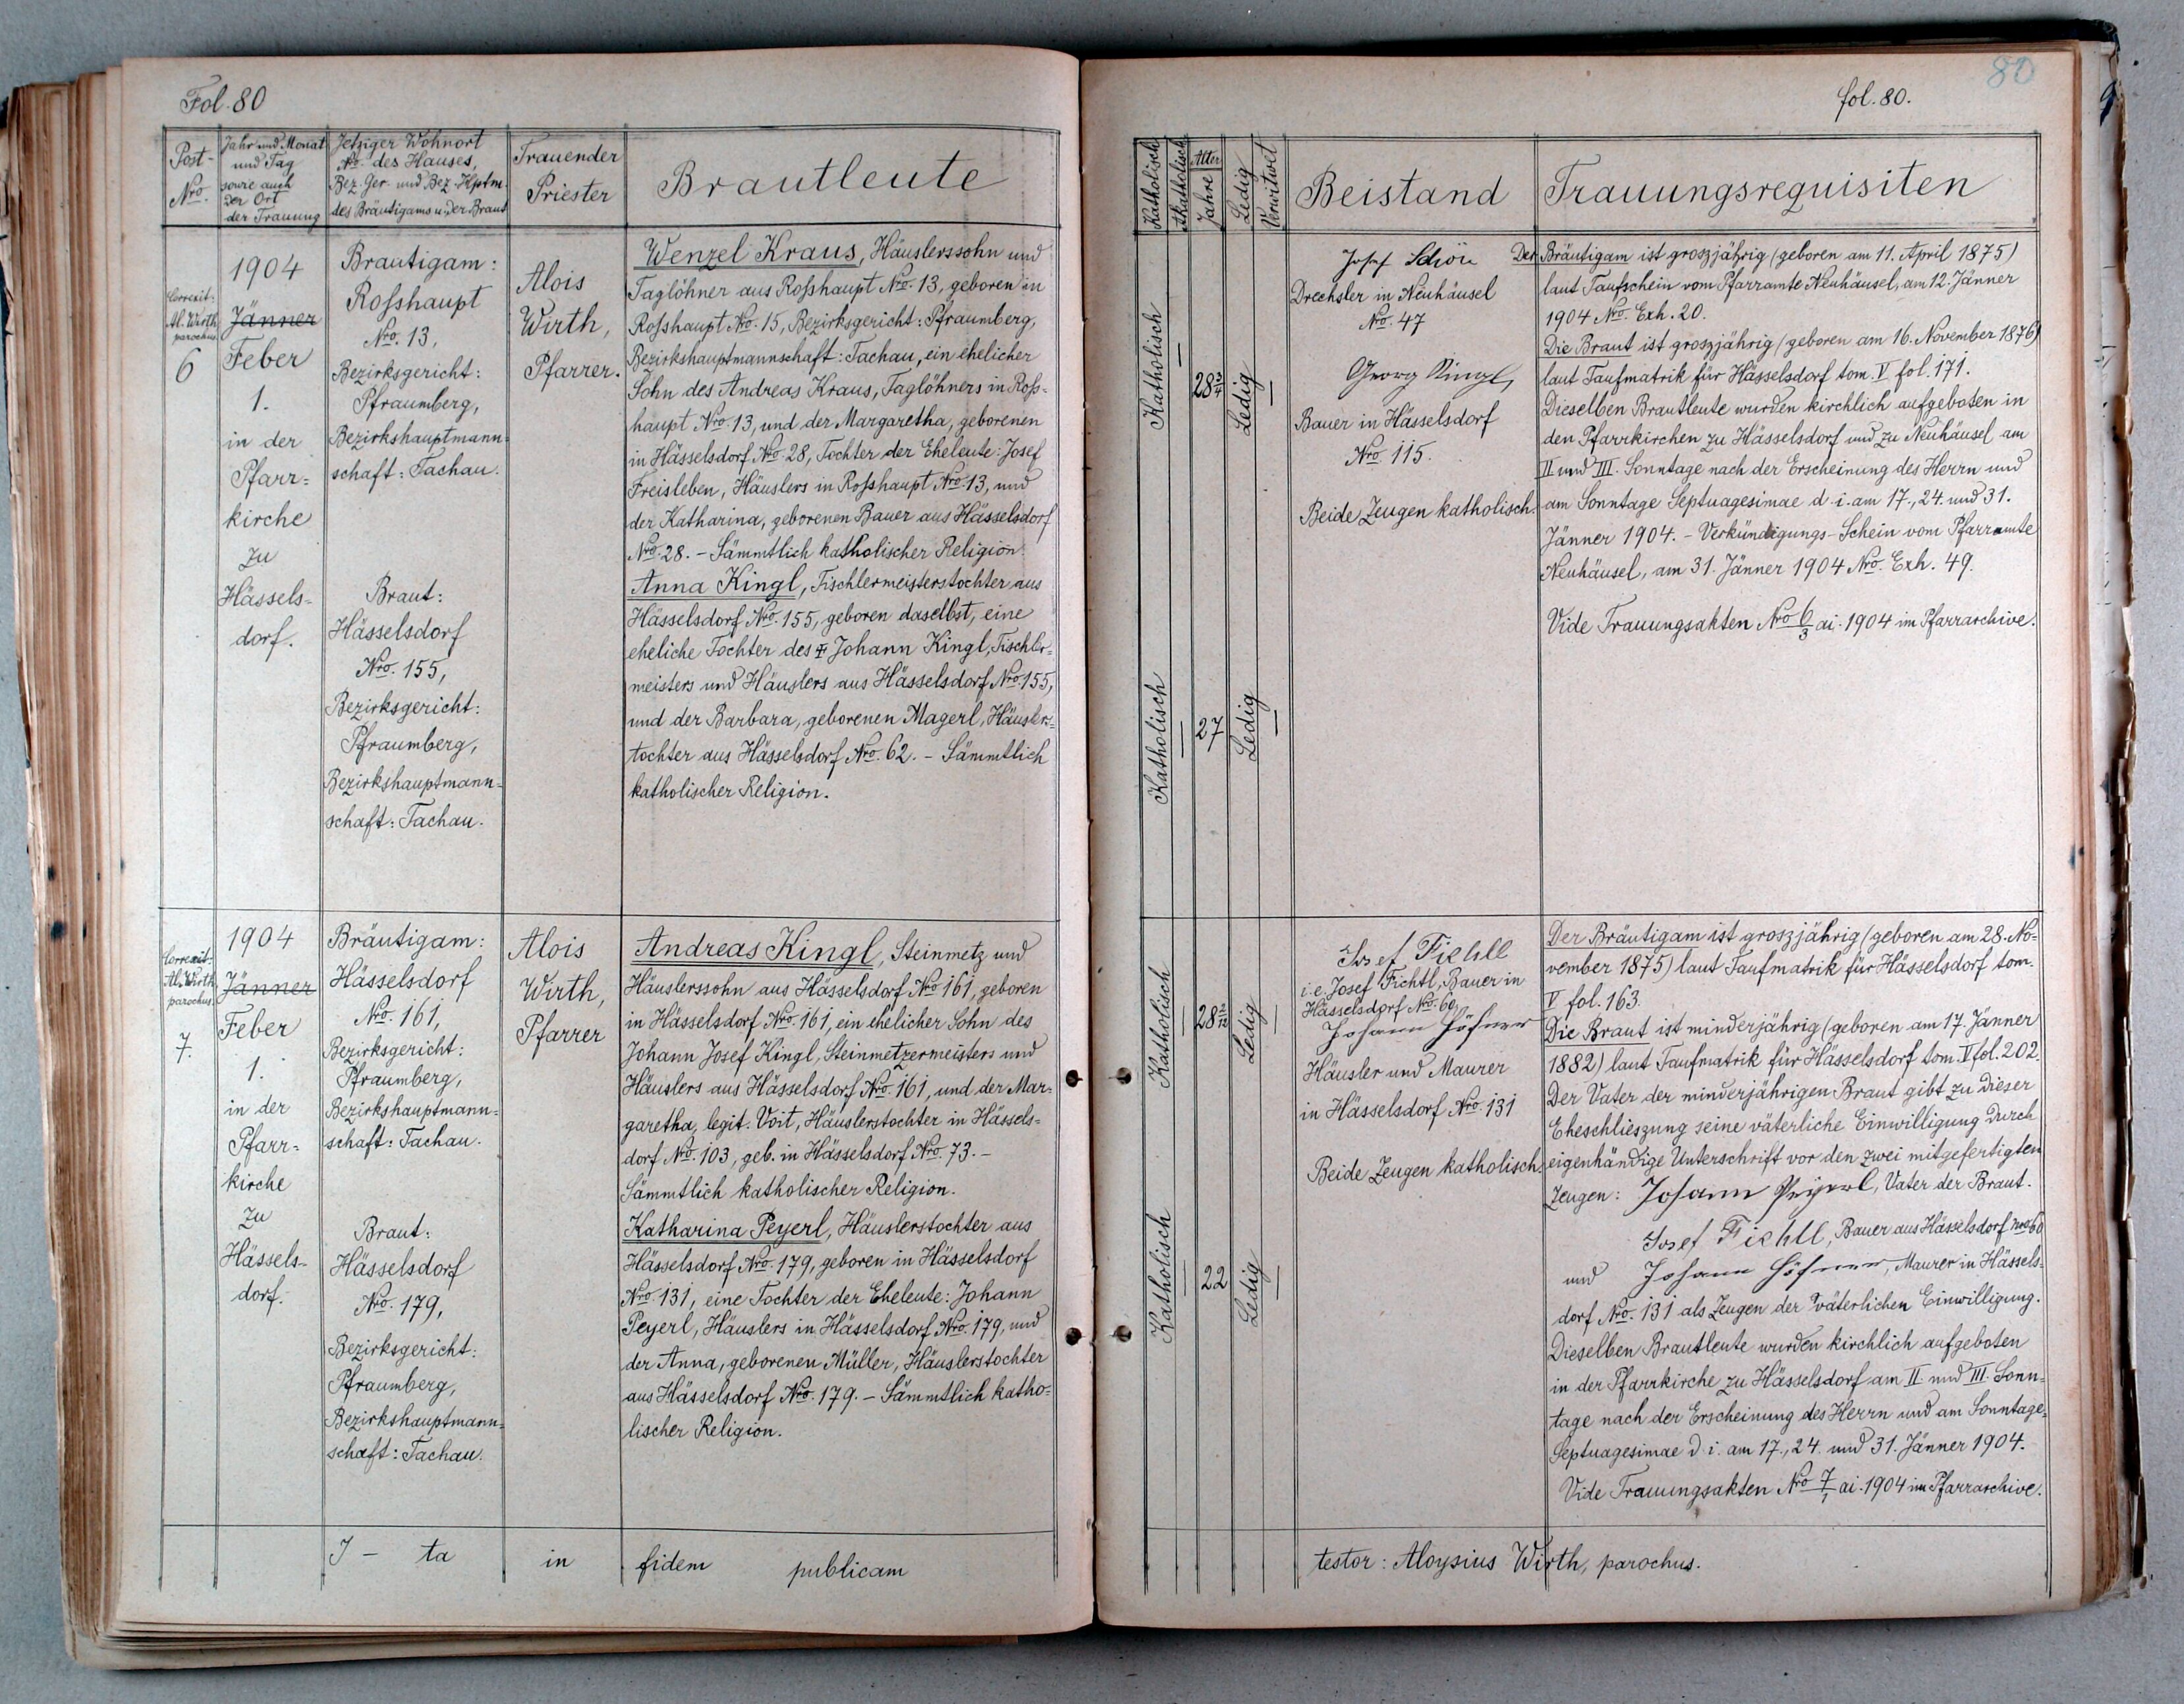 Fol. 80
Post-
Nro.
Jahr und Monat
und Tag
sowie auch
der Ort
der Trauung
Jetziger Wohnort
No. des Hauses,
Bez. Ger. und Bez. Hptm.
des Bräutigams u. der Braut
Trauender
Priester
Brautleute
Correxit:
Al. Wirth
parochus.
6
1904
Jänner
Feber
1.
in der
Pfarr-
kirche
zu
Hässels-
dorf.
Brautigam:
Rosshaupt
Nro. 13,
Bezirksgericht:
Pfraumberg,
Bezirkshauptmann-
schaft: Tachau.
Braut:
Hässelsdorf
Nro. 155,
Bezirksgericht:
Pfraumberg,
Bezirkshauptmann-
schaft: Tachau.
Alois
Wirth,
Pfarrer.
Wenzel Kraus, Häuslerssohn und
Taglöhner aus Rosshaupt Nro. 13, geboren in
Rosshaupt Nro. 15, Bezirksgericht: Pfraumberg,
Bezirkshauptmannschaft: Tachau, ein ehelicher
Sohn des Andreas Kraus, Taglöhners in Ross-
haupt Nro. 13, und der Margaretha, geborenen
in Hässelsdorf Nro. 28, Tochter der Eheleute: Josef
Freisleben, Häuslers in Rosshaupt Nro. 13, und
der Katharina, geborenen Bauer aus Hässelsdorf
Nro. 28. - Sämmtlich katholischer Religion.
Anna Kingl, Tischlermeisterstochter aus
Hässelsdorf Nro. 155, geboren daselbst, eine
eheliche Tochter des ‡ Johann Kingl, Tischler-
meisters und Häuslers aus Hässelsdorf Nro. 155,
und der Barbara, geborenen Magerl, Häuslers-
tochter aus Hässelsdorf Nro. 62. - Sämmtlich
katholischer Religion.
Correxit:
Al. Wirth
parochus.
7.
1904
Jänner
Feber
1.
in der
Pfarr-
kirche
zu
Hässels-
dorf.
Bräutigam:
Hässelsdorf
Nro. 161,
Bezirksgericht:
Pfraumberg,
Bezirkshauptmann-
schaft: Tachau.
Braut:
Hässelsdorf
Nro. 179,
Bezirksgericht:
Pfraumberg,
Bezirkshauptmann-
schaft: Tachau.
Alois
Wirth,
Pfarrer
Andreas Kingl, Steinmetz und
Häuslerssohn aus Hässelsdorf Nro. 161, geboren
in Hässelsdorf Nro. 161, ein ehelicher Sohn des
Johann Josef Kingl, Steinmetzermeisters und
Häuslers aus Hässelsdorf Nro. 161, und der Mar-
garetha, legit. Voit, Häuslerstochter in Hässels-
dorf Nro. 103, geb. in Hässelsdorf Nro. 73. -
Sämmtlich katholischer Religion.
Katharina Peyerl, Häuslerstochter aus
Hässelsdorf Nro. 179, geboren in Hässelsdorf
Nro. 131, eine Tochter der Eheleute: Johann
Peyerl, Häuslers in Hässelsdorf Nro. 179, und
der Anna, geborenen Müller, Häuslerstochter
aus Hässelsdorf Nro. 179. - Sämmtlich katho-
lischer Religion.
I - ta in fidem publicam
80
fol. 80.
Katholisch
Akatholisch
Alter
Jahre
Ledig
Verwitwet
Beistand
Trauungsrequisiten
Katholisch
28 3/4
Ledig
Katholisch
27
Ledig
Josef Schön
Drechsler in Neuhäusel
Nro. 47
Georg Kingl,
Bauer in Hässelsdorf
Nro. 115.
Beide Zeugen katholisch.
Der Bräutigam ist groszjährig (geboren am 11. April 1875)
laut Taufschein vom Pfarramte Neuhäusel, am 12. Jänner
1904 Nro. Exh. 20.
Die Braut ist groszjährig (geboren am 16. November 1876)
laut Taufmatrik für Hässelsdorf tom. V fol. 171.
Dieselben Brautleute wurden kirchlich aufgeboten in
den Pfarrkirchen zu Hässelsdorf und zu Neuhäusel am
II. und III. Sonntage nach der Erscheinung des Herrn und
am Sonntage Septuagesimae d. i. am 17., 24. und 31.
Jänner 1904. - Verkündigungs-Schein vom Pfarramte
Neuhäusel, am 31. Jänner 1904 Nro. Exh. 49.
Vide Trauungsakten Nro 6/3 ai. 1904 im Pfarrarchive.
Katholisch
28 2/12
Ledig
Katholisch
22
Ledig
Josef Fichtl
i. e. Josef Fichtl, Bauer in
Hässelsdorf Nro. 60
Johann Höfner
Häusler und Maurer
in Hässelsdorf Nro. 131
Beide Zeugen katholisch
Der Bräutigam ist groszjährig (geboren am 28. No-
vember 1875) laut Taufmatrik für Hässelsdorf tom.
V fol. 163.
Die Braut ist minderjährig (geboren am 17. Jänner
1882) laut Taufmatrik für Hässelsdorf tom. V fol. 202.
Der Vater der minderjährigen Braut gibt zu dieser
Eheschlieszung seine väterliche Einwilligung durch
eigenhändige Unterschrift vor den zwei mitgefertigten
Zeugen: Johann Peyerl, Vater der Braut.
Josef Fichtl, Bauer aus Hässelsdorf Nro 60
und Johann Höfner, Maurer in Hässels-
dorf Nro. 131 als Zeugen der väterlichen Einwilligung.
Dieselben Brautleute wurden kirchlich aufgeboten
in der Pfarrkirche zu Hässelsdorf am II. und III. Sonn-
tage nach der Erscheinung des Herrn und am Sonntage
Septuagesimae d. i. am 17., 24. und 31. Jänner 1904.
Vide Trauungsakten Nro 7/1 ai. 1904 im Pfarrarchive.
testor: Aloysius Wirth, parochus.